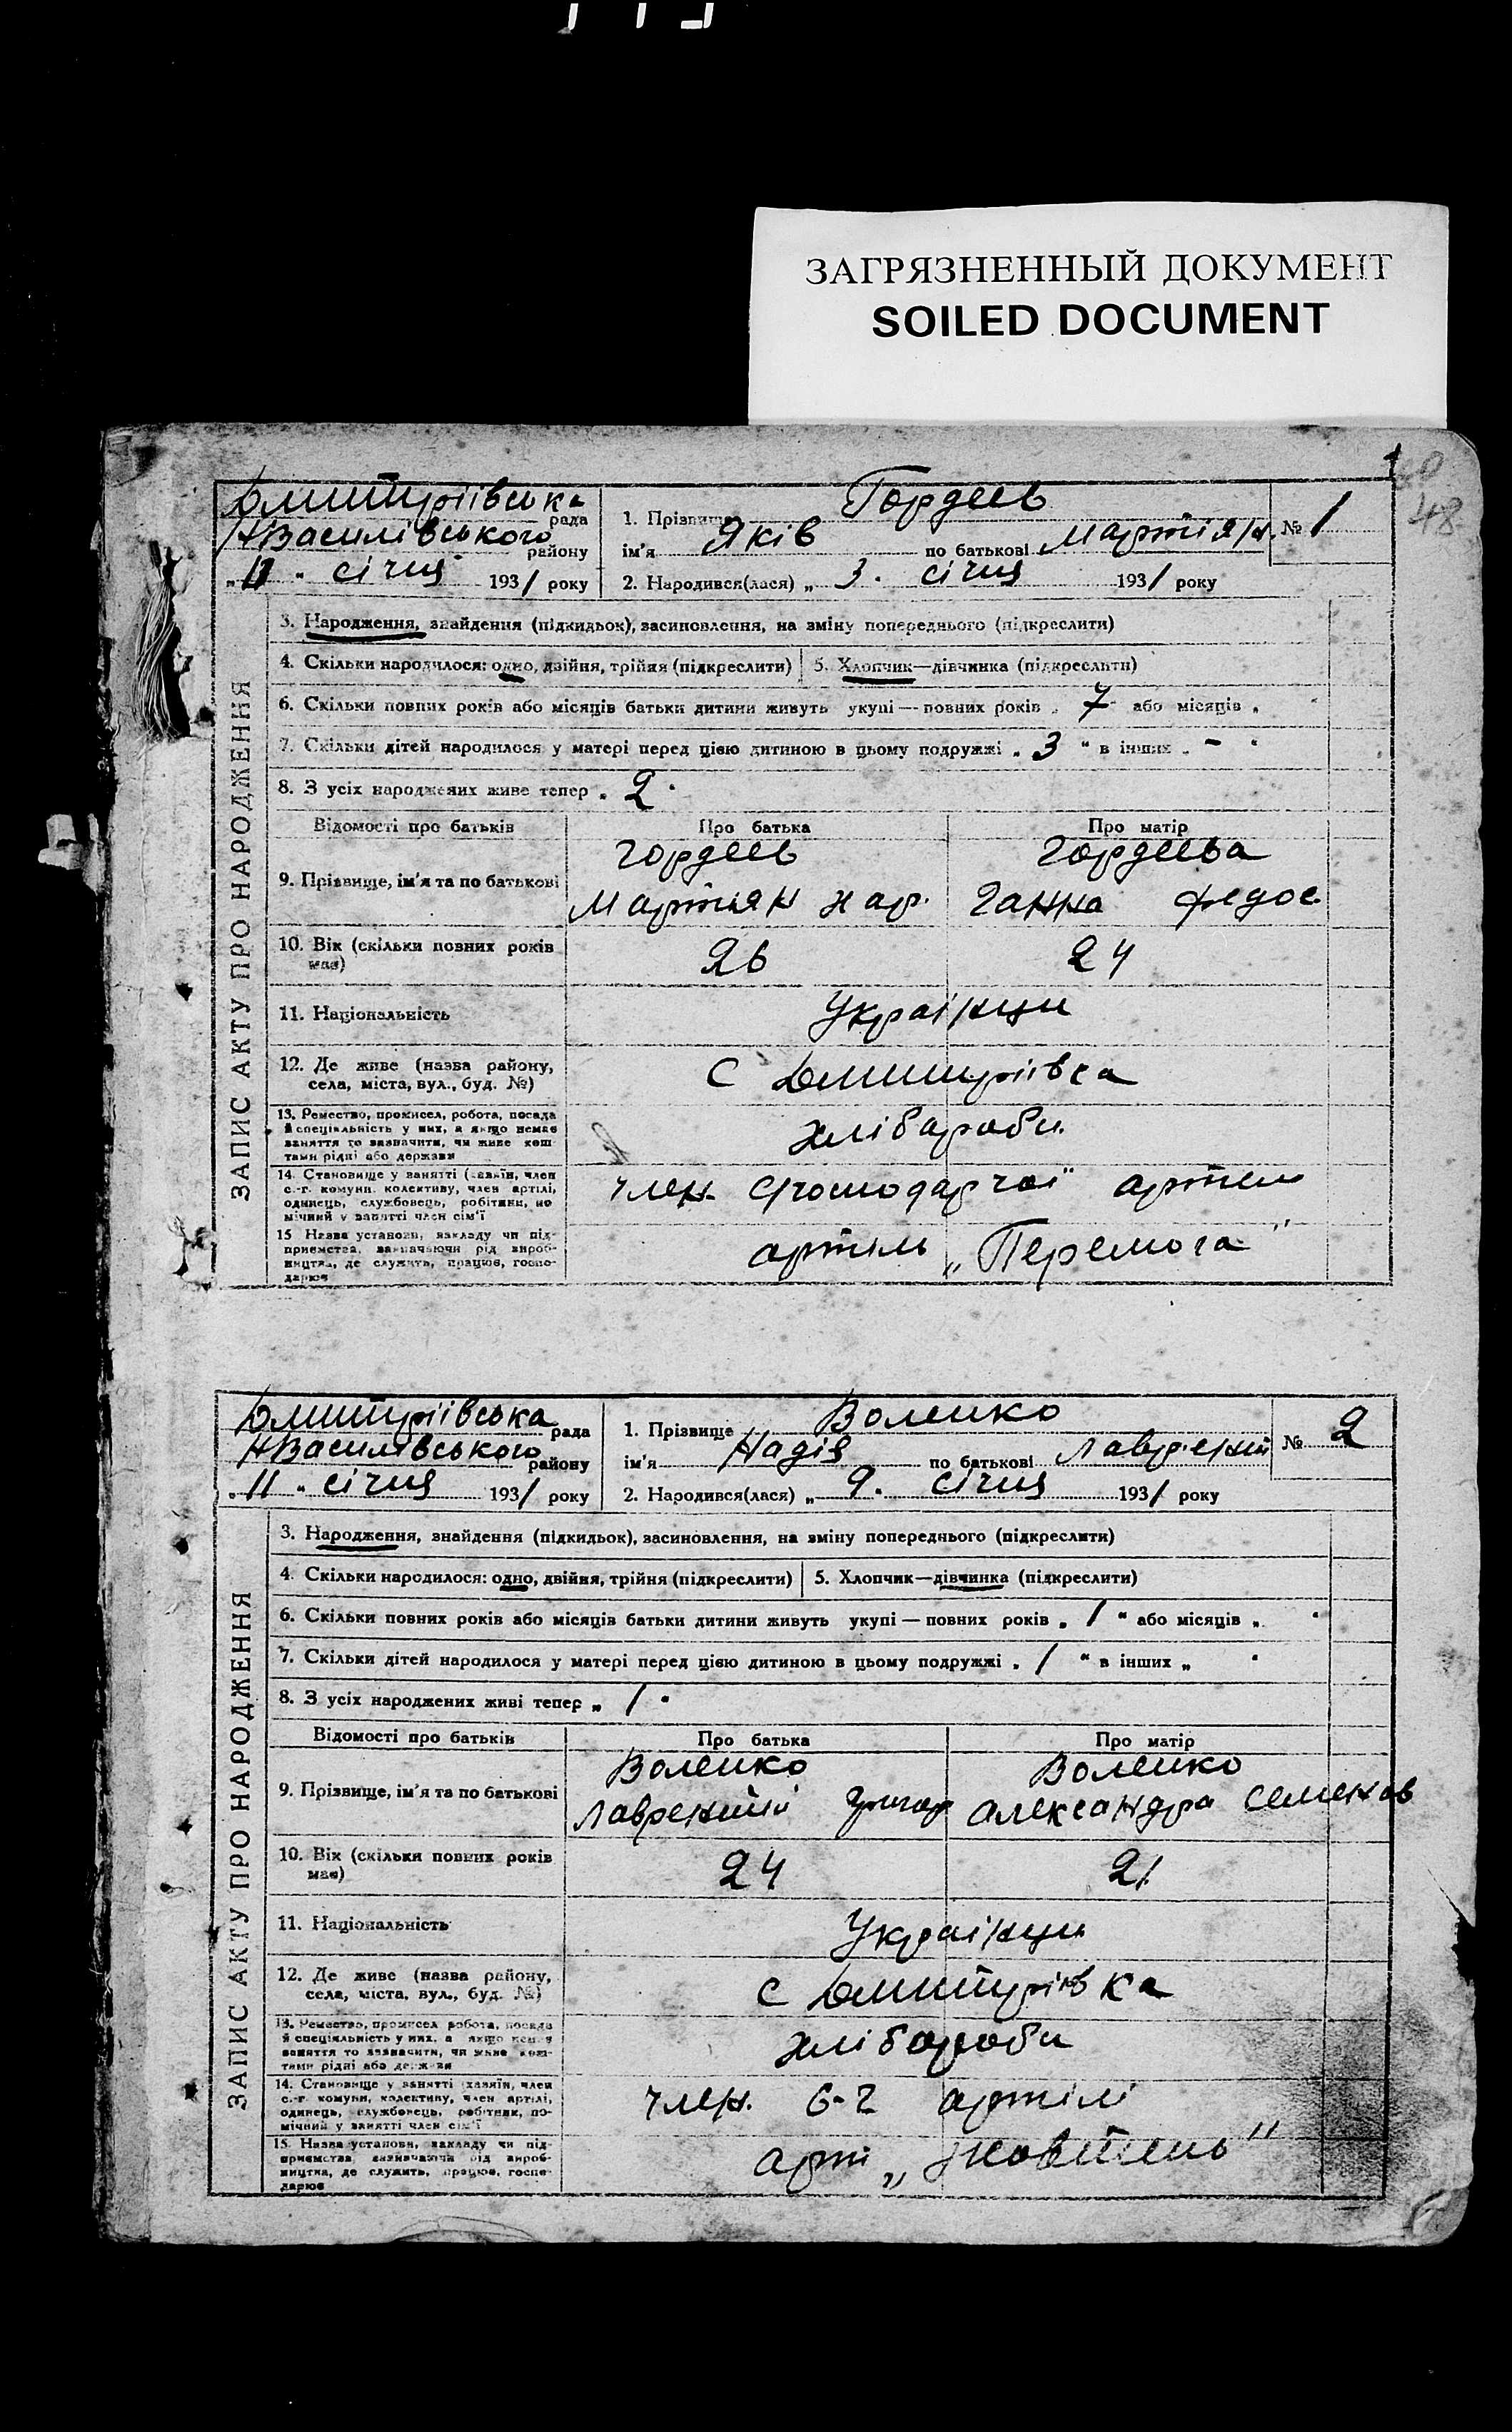 ЗАГРЯЗНЕННЫЙ ДОКУМЕНТ
SOILED DOCUMENT
48
Дмитріівська рада
НВасилівського району
"11" січня 1931 року
1. Прізвище Гордеев
ім'я Яків по батькові Мартіян.
2. Народився(лася) „ 3. січня 1931 року
№ 1
ЗАПИС АКТУ ПРО НАРОДЖЕННЯ
3. Народження, знайдення (підкидьок), засиновлення, на зміну попереднього (підкреслити)
4. Скільки народилося: одно, двійня, трійня (підкреслити) 5. Хлопчик—дівчинка (підкреслити)
6. Скільки повних років або місяців батьки дитини живуть укупі — повних років „ 7 або місяців „
7. Скільки дітей народилося у матері перед цією дитиною в цьому подружжі „ 3 " в інших „ - "
8. З усіх народжених живе тепер „ 2 "
Відомості про батьків Про батька Про матір
9. Прізвище, ім'я та по батькові
Гордеев Гордеева
Мартиян Ганна Федос.
10. Вік (скільки повних років має) 26 24
11. Національність Украінци
12. Де живе (назва району, села, міста, вул., буд. №) с Дмитріівка
13. Ремество, промисел, робота, посада
й спеціальність у них, а якщо немає
заняття то зазначити, чи живе кош-
тами рідні або держави
хлібороби.
14. Становище у занятті (хазяїн, член
с.-г. комуни, колективу, член артілі,
одинець, службовець, робітник, по-
мічний у занятті член сім'ї
член.
15 Назва установи, закладу чи під-
приємства, зазначаючи рід вироб-
ництва, де служить, працює, госпо-
дарює
артіль „Перемога"
Дмитріівська рада
НВасилівського району
"11" січня 1931 року
1. Прізвище Воленко
ім'я Надія по батькові Лаврентій
2. Народився(лася) „ 9. січня 1931 року
№ 2
ЗАПИС АКТУ ПРО НАРОДЖЕННЯ
3. Народження, знайдення (підкидьок), засиновлення, на зміну попереднього (підкреслити)
4. Скільки народилося: одно, двійня, трійня (підкреслити) 5. Хлопчик—дівчинка (підкреслити)
6. Скільки повних років або місяців батьки дитини живуть укупі — повних років „ 1 " або місяців „ "
7. Скільки дітей народилося у матері перед цією дитиною в цьому подружжі „ 1 " в інших „ "
8. З усіх народжених живі тепер „ 1 "
Відомості про батьків Про батька Про матір
9. Прізвище, ім'я та по батькові
Воленко Воленко
Лаврентій Григор Александра Семенов
10. Вік (скільки повних років має) 24 21
11. Національність Украінци
12. Де живе (назва району, села, міста, вул., буд. №) с Дмитрівка
13. Ремество, промисел робота, посада
й спеціальність у них, а якщо немає
заняття то зазначити, чи живе кош-
тами рідні або держави
хлібороби
14. Становище у занятті (хазяїн, член
с.-г. комуни, колективу, член артілі,
одинець, службовець, робітник, по-
мічний у занятті член сім'ї
член. с-г артілі
15. Назва установи, закладу чи під-
приємства, зазначаючи рід вироб-
ництва, де служить, працює, госпо-
дарює
арт „Жовтень"